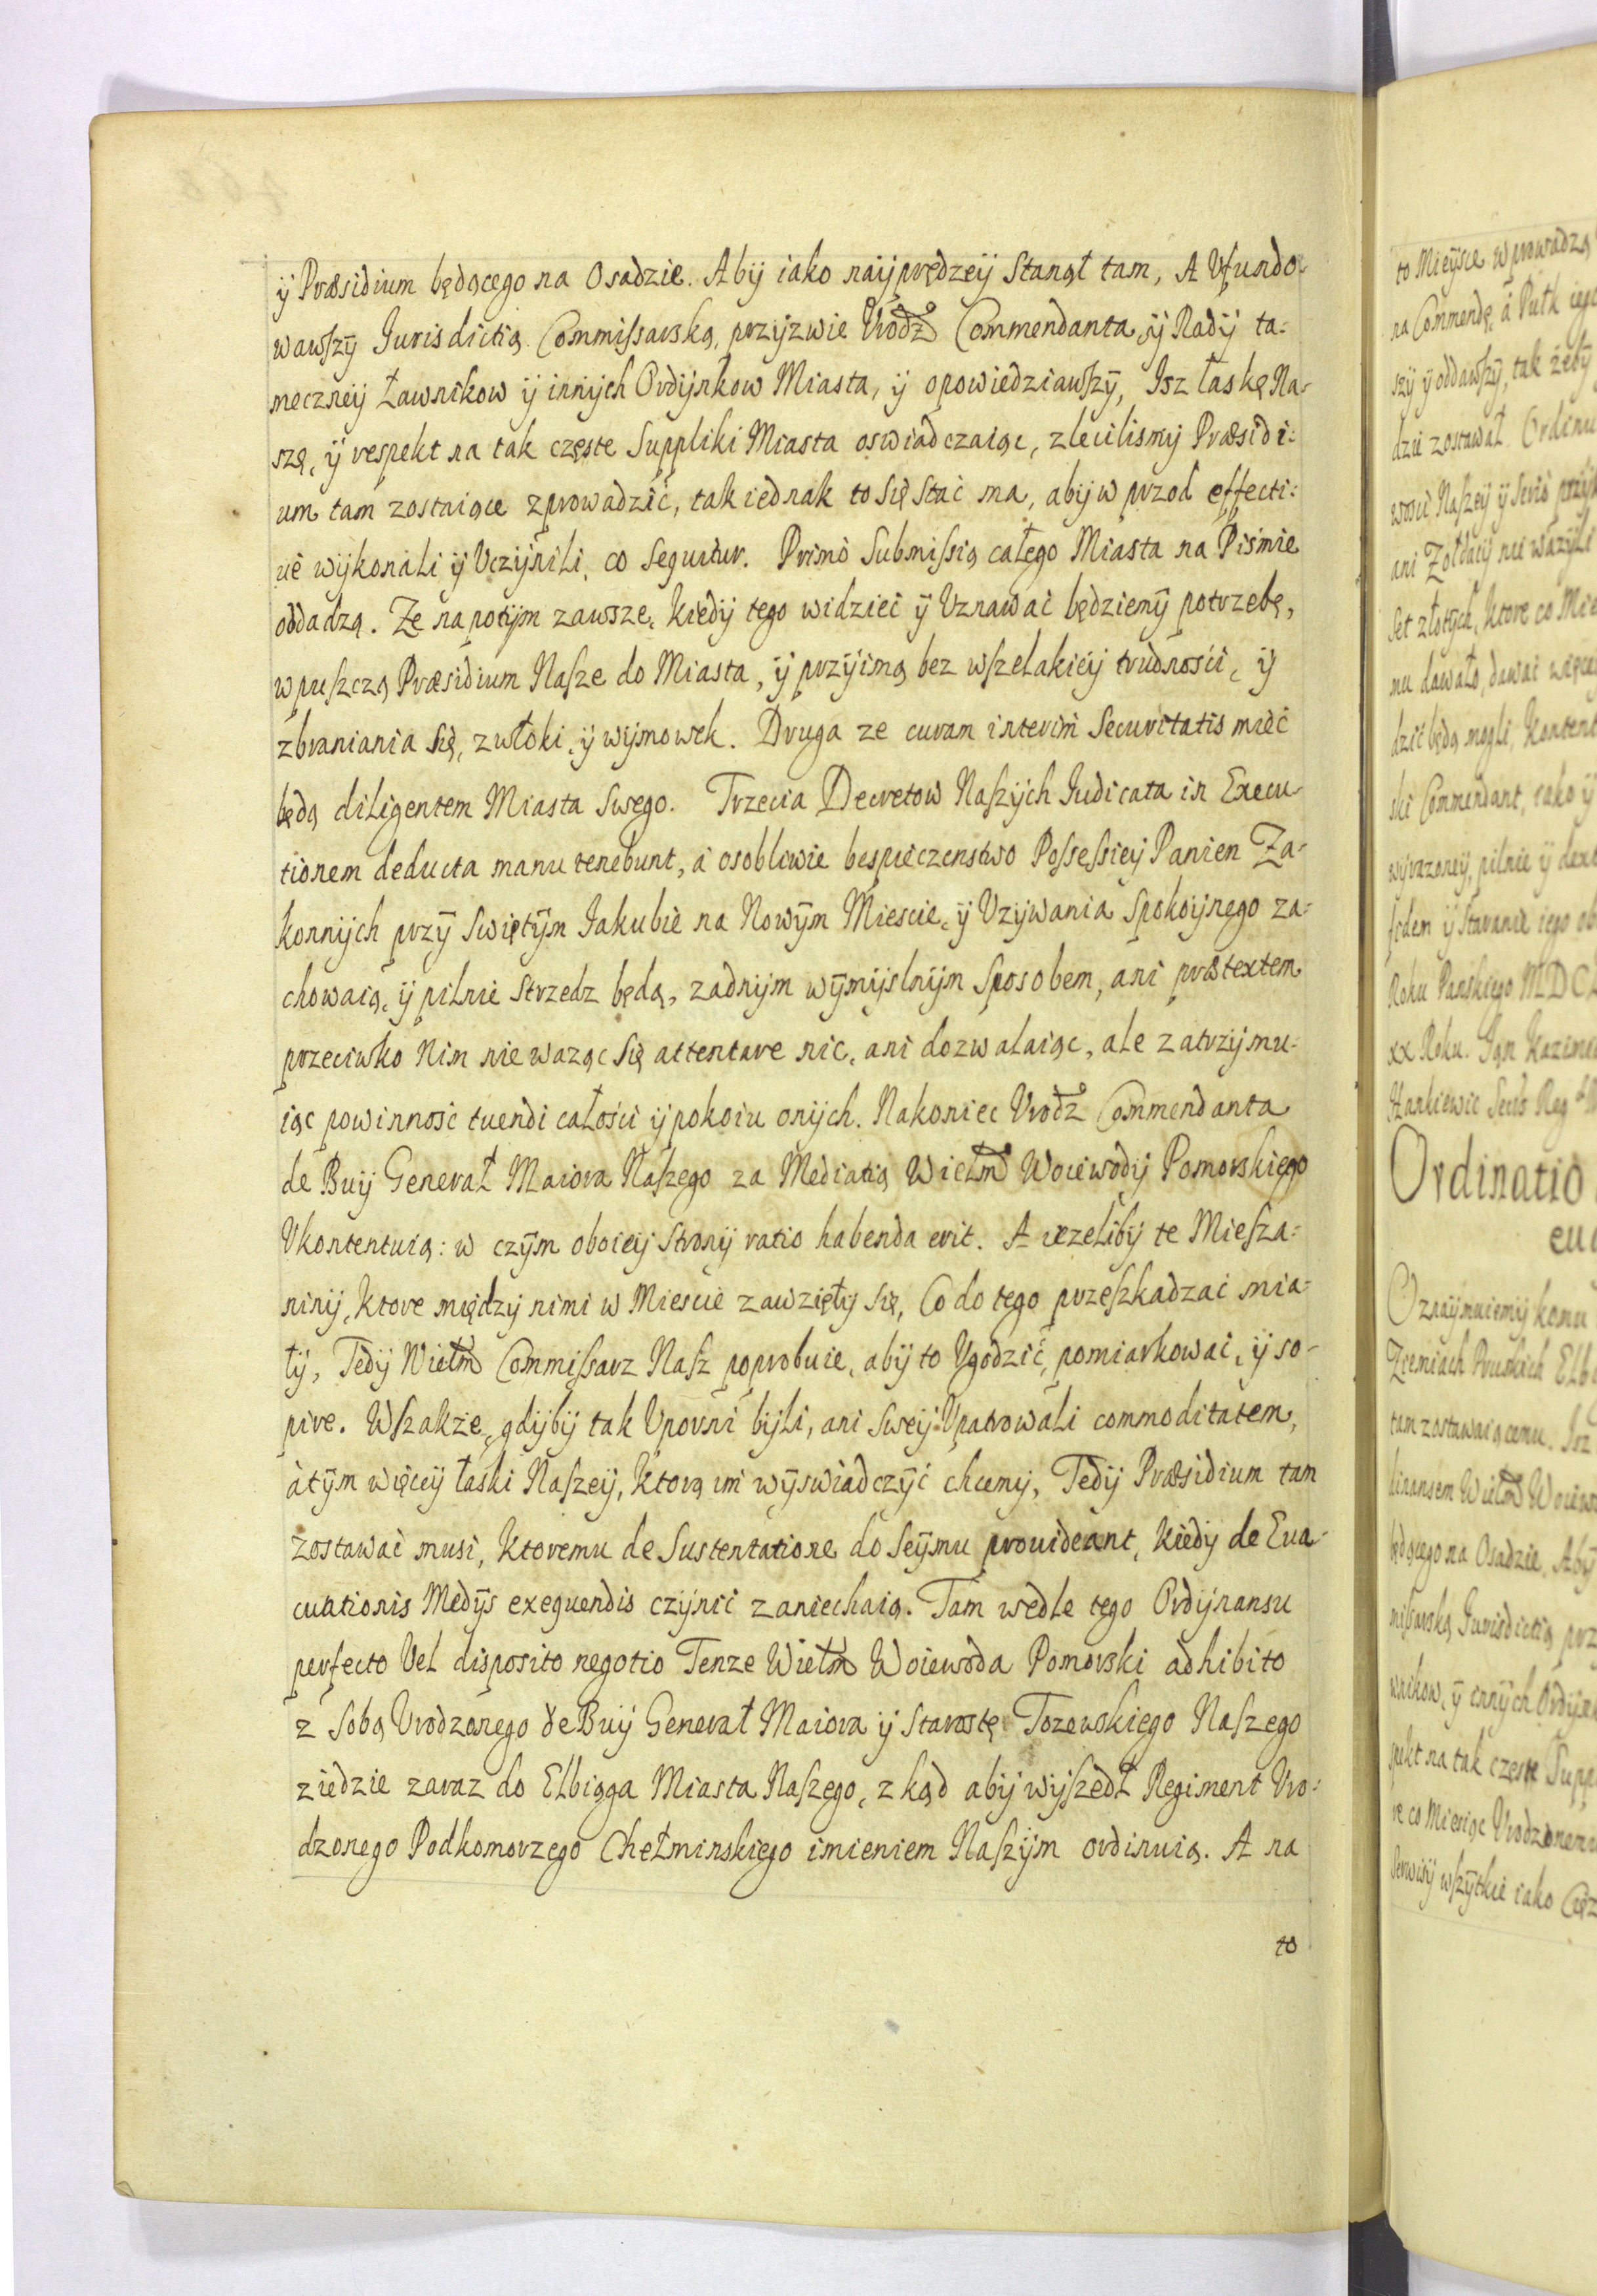 ÿ Præsidium będącego na Osadzie. Abÿ iako naÿprędzeÿ Stanął tam, A Vfundo-
wawszÿ Jurisdictią Commissarską, przÿzwie Vrodz Commendanta, ÿ Radÿ ta-
meczneÿ Ławnikow ÿ innÿch Ordÿnkow Miasta, ÿ opowiedziawszÿ, Isz łaskę Na-
szę, ÿ respekt na tak częste Suppliki Miasta oswiadczaiąc, zlecilismÿ Præsidi-
um tam zostaiące zprowadzić, tak iednak to się stać ma, abÿ w przod effecti-
uè wÿkonali ÿ Vczÿnili, co sequitur. Primò Submissią całego Miasta na Pismie
oddadzą. Ze napotÿm zawsze, kiedÿ tego widzieć ÿ Vznawać będziemÿ potrzebę,
wpuszczą Præsidium Nasze do Miasta, ÿ przÿimą bez wszelakieÿ trudności, ÿ
zbraniania się, zwłoki, ÿ wÿmowek. Druga ze curam interim Securitatis mieć
będą diligentem Miasta Swego. Trzecia Decretow Naszÿch Iudicata in Execu-
tionem deducta manu tenebunt, á osobliwie bespieczenstwo Possessieÿ Panien Za-
konnÿch przÿ Swiętÿm Jakubie na Nowÿm Miescie, ÿ Vzÿwania Spokoÿnego za-
chowaią, ÿ pilnie Strzedz będą, zadnÿm wÿmÿslnÿm Sposobem, ani prætextem
przeciwko Nim nie waząc się attentare nic, ani dozwalaiąc, ale zatrzÿmu-
iąc powinność tuendi całości ÿ pokoiu onÿch. Nakoniec Vrodz Commendanta
de Buÿ Generał Maiora Naszego za Mediatią Wielm Woiewodÿ Pomorskiego
Vkontentuią: w czÿm oboieÿ stronÿ ratio habenda erit. A iezelibÿ te Miesza-
ninÿ, ktore międzÿ nimi w Miescie zawziętÿ się, Co do tego przeszkadzać mia-
łÿ, Tedÿ Wielm Commissarz Nasz poprobuie, abÿ to Vgodzić, pomiarkować, ÿ so-
pire. Wszakze, gdÿbÿ tak Vporni bÿli, ani Sweÿ Vpatrowali commoditatem,
á tÿm więceÿ łaski Naszeÿ, ktorą im wÿswiadczÿć chcemÿ, Tedÿ Præsidium tam
zostawać musi, ktoremu de Sustentatione do Seÿmu prouideant, kiedÿ de Eua-
cuationis Medÿs exequendis czÿnić zaniechaią. Tam wedle tego Ordÿnansu
perfecto Vel disposito negotio Tenze Wielm Woiewoda Pomorski adhibito
z sobą Vrodzonego de Buÿ Generał Maiora ÿ Starostę Tczewskiego Naszego
ziedzie zaraz do Elbiąga Miasta Naszego, z kąd abÿ wÿszedł Regiment Vro-
dzonego Podkomorzego Chełminskiego imieniem Naszÿm ordinuią. A na
to
to Mieÿsce wprowadzą
na Commendę, á Pułk iego
szÿ ÿ oddawszÿ, tak zebÿ
dzie zostawał. Ordinu
ani Zołdacÿ nie wazÿli
set złotÿch, ktore co Mie
mu dawało, dawać więce
dzić będą mogli, kontent
ski Commendant, iako ÿ
wÿrazoneÿ, pilnie ÿ
fidem ÿ Staranie iego
Roku Panskiego MDC
xx Roku. Jan Kazimie
Hankiewic Secrs Reg
Ordinatio
Oznaÿmuiemÿ komu
Ziemiach Pruskich Elb
tam zostawaiącemu. Isz
Wielm Woiew
będącego na Osadzie. Abÿ
missarską Jurisdictią prz
wnikow, ÿ innÿch Ordÿn
spekt na tak częste Supp
re co Miesiąc Vrodzonemu
Serwisÿ wszÿtkie iako